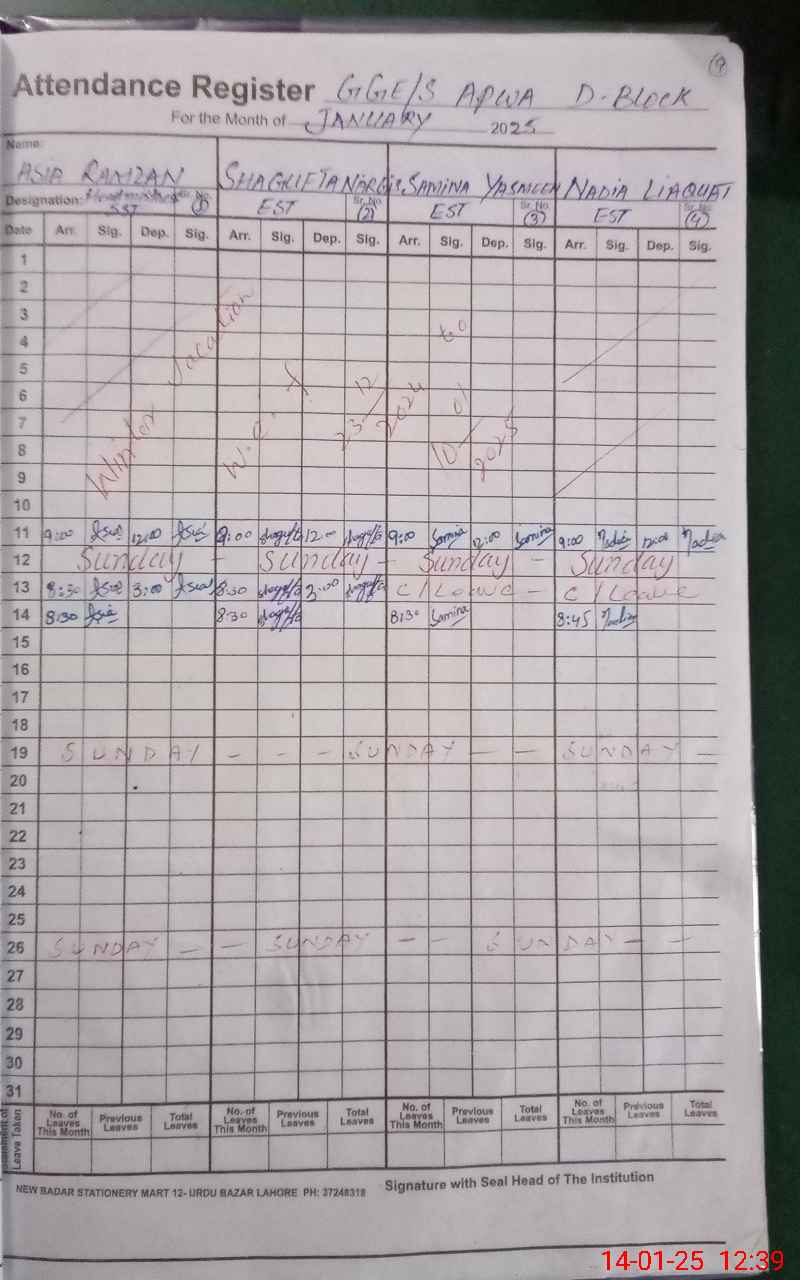 9
Attendance Register GGE/S APWA D-BLOCK
For the Month of JANUARY 2025
Name:
ASIA RAMZAN SHAGUFTA NARGIS SAMINA YASMEEN NADIA LIAQUAT
Designation: Headmistress SST Sr. No. (1) EST Sr. No. (2) EST Sr. No. (3) EST Sr. No. (4)
Date Arr. Sig. Dep. Sig. Arr. Sig. Dep. Sig. Arr. Sig. Dep. Sig. Arr. Sig. Dep. Sig.
1
2
3
4
5
6
7
8
9
10
Winter Vacation
W.e.f 23/12/2024 to 10/01/2025
11 9:00 Asia 12:00 Asia 9:00 Shagufta 12:00 Shagufta 9:00 Samina 12:00 Samina 9:00 Nadia 12:00 Nadia
12 Sunday - Sunday - Sunday - Sunday
13 8:30 Asia 3:00 Asia 8:30 Shagufta 3:00 Shagufta C/Leave - C/Leave
14 8:30 Asia 8:30 Shagufta 8:30 Samina 8:45 Nadia
15
16
17
18
19 SUNDAY - - - SUNDAY - - SUNDAY -
20
21
22
23
24
25
26 SUNDAY - - SUNDAY - - SUNDAY - -
27
28
29
30
31
Leave Taken No. of Leaves This Month Previous Leaves Total Leaves No. of Leaves This Month Previous Leaves Total Leaves No. of Leaves This Month Previous Leaves Total Leaves No. of Leaves This Month Previous Leaves Total Leaves
NEW BADAR STATIONERY MART 12- URDU BAZAR LAHORE PH: 37248318 Signature with Seal Head of The Institution
14-01-25 12:39